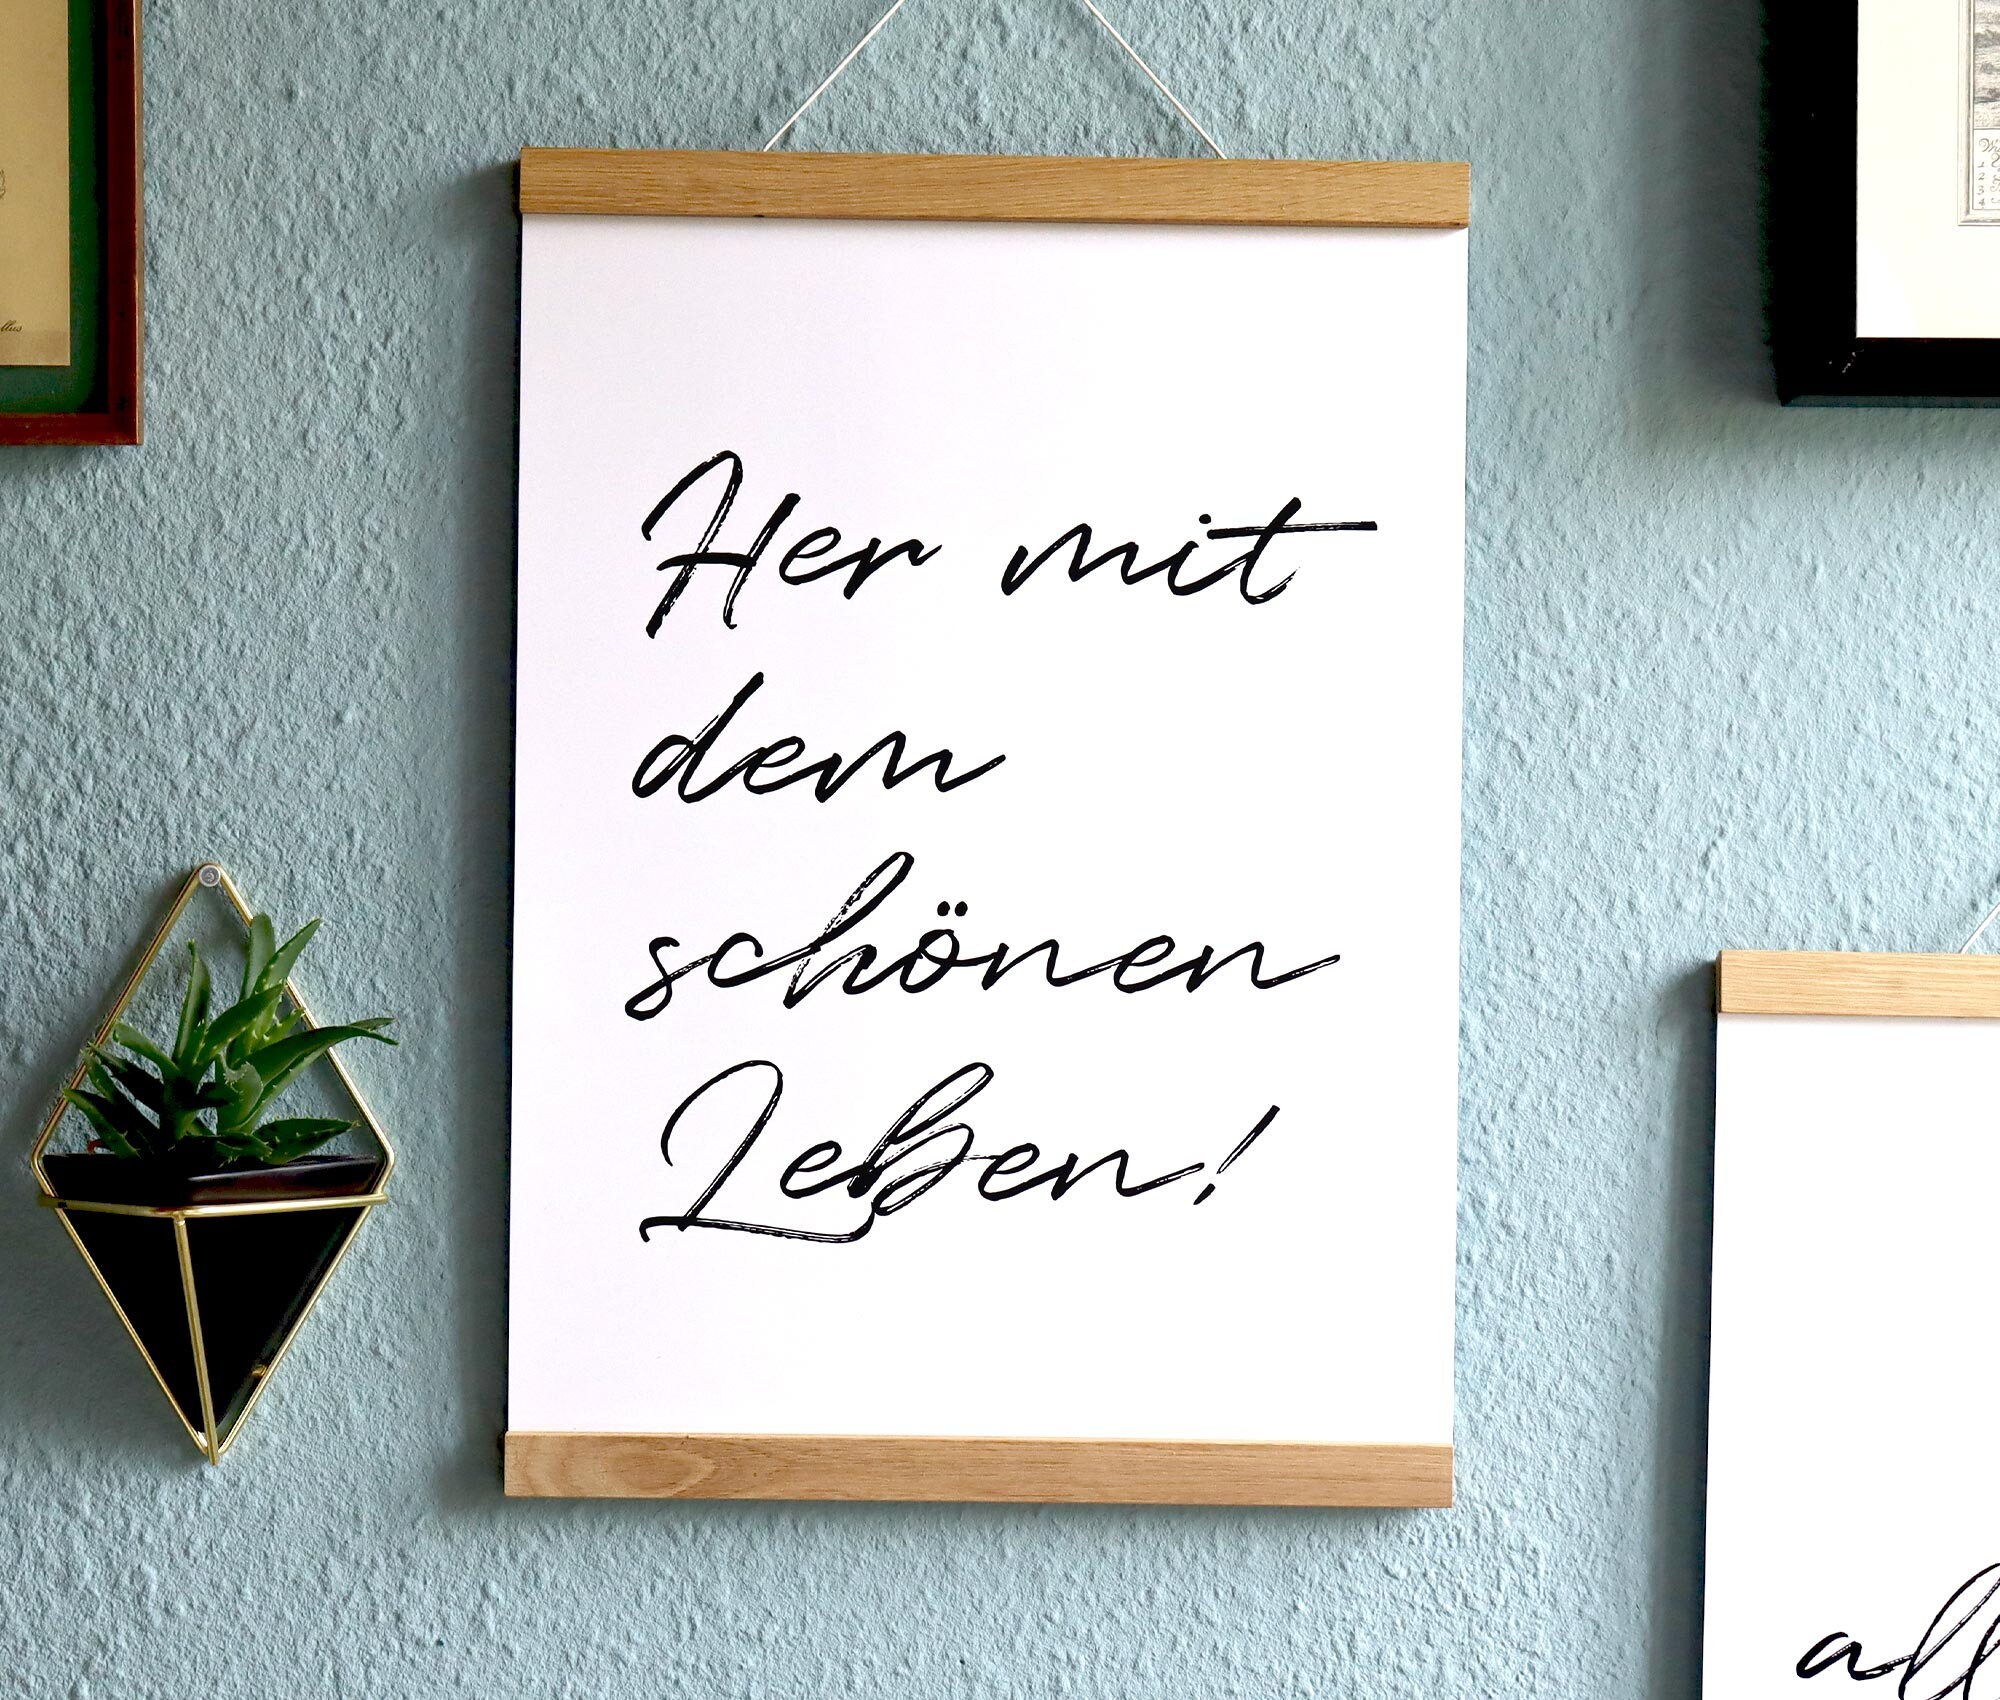 Her mit
dem
schönen
Leben!